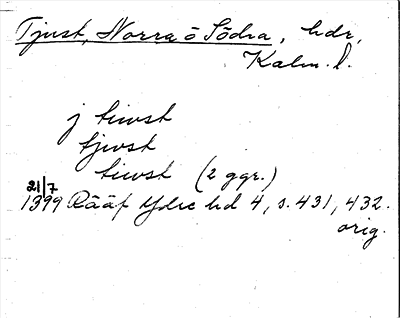 Tjust, Norra o Södra, hdr,
Kalm. l.
j tiwst
tjwst
tiwst (2 ggr.)
21/7
1399 Rääf Ydre hd 4, s. 431, 432.
orig.